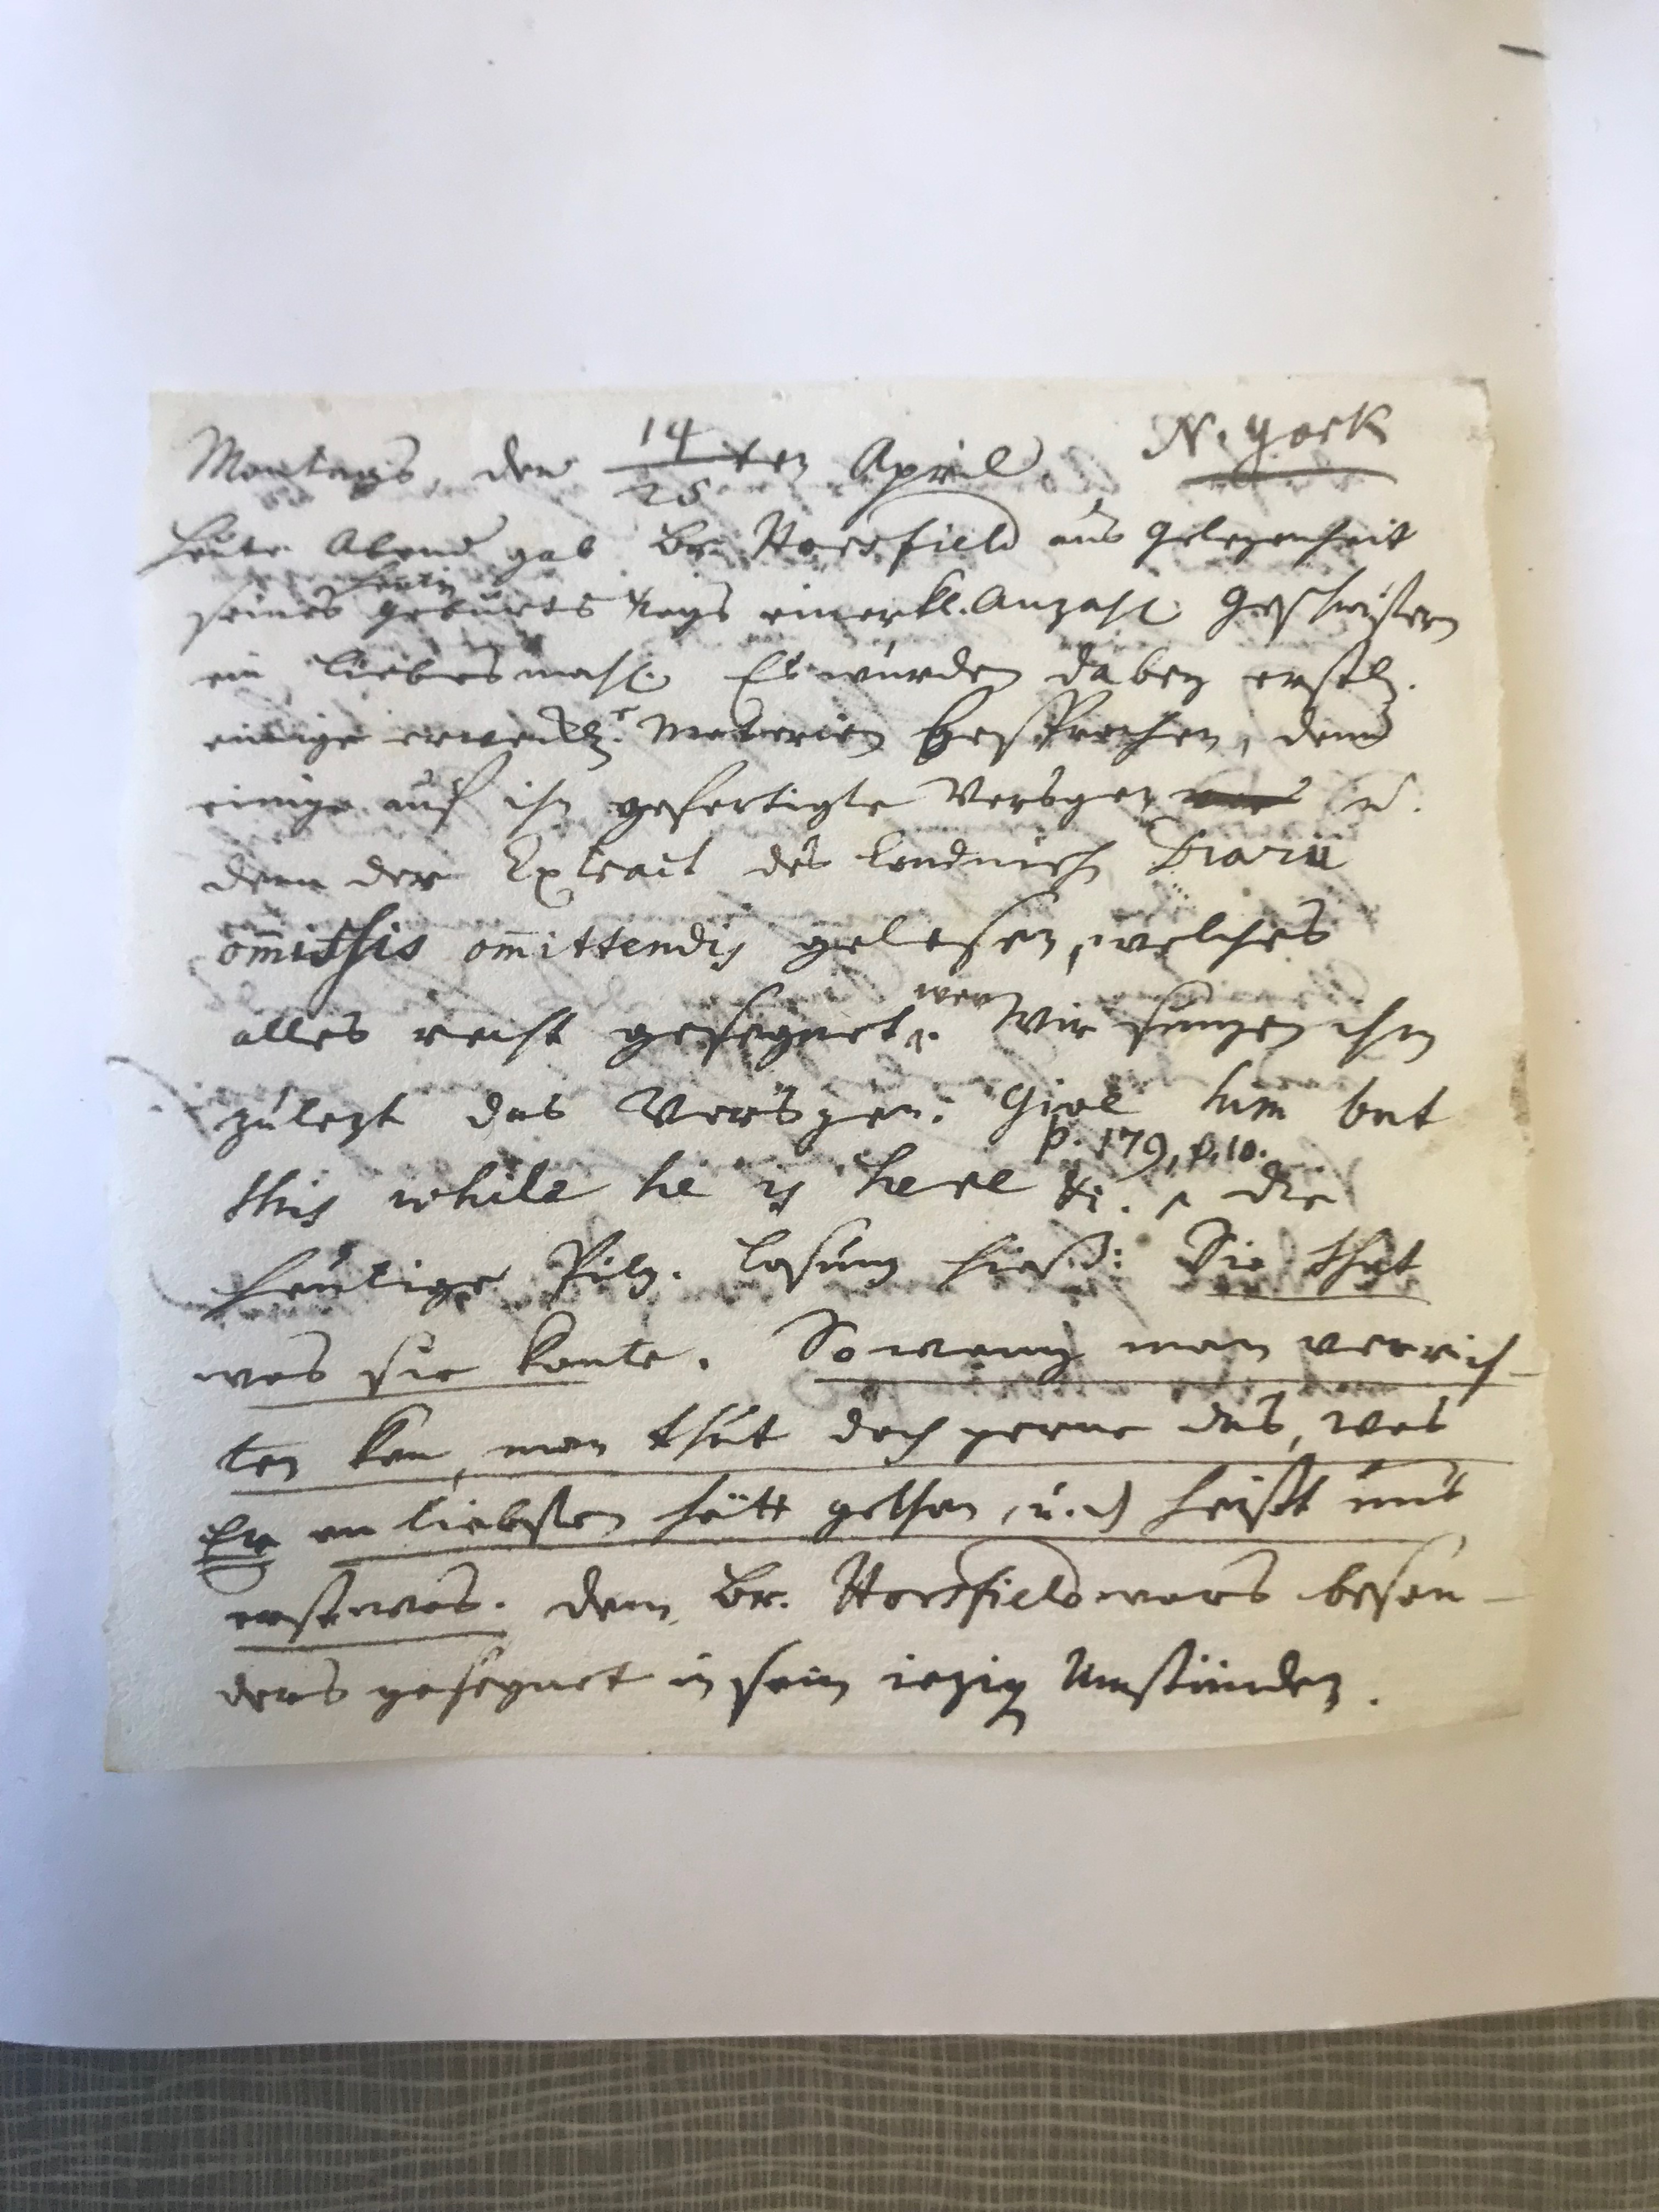 Montags, den 14/25 ten April. N. York
Heute Abend gab Br. Horsfield aus Gelegenheit
seines heutig Geburts Tags einer kl. Anzahl Geschwistern
ein Liebesmahl. Es wurden dabey erstl.
einige erweckl. Materien besprochen, denn
einige auf ihn gefertigte Versgen u.
denn der Extract des Londnisch Diarii
om̅issis om̅ittendis gelesen, welches
alles recht gesegnet war. Wir sungen ihm
zulezt das Versgen: Give him but
this while he is here &c. p. 179, v. 10. die
heutige Pilg. Losung hieß: Sie that
was sie konte. So wenig man verrich-
ten kan, man thut doch gerne das, was
Er am liebsten hätt gethan, u. das heißt uns
erst was. dem Br. Horsfield wars beson-
ders gesegnet in sein iezig Umständen.